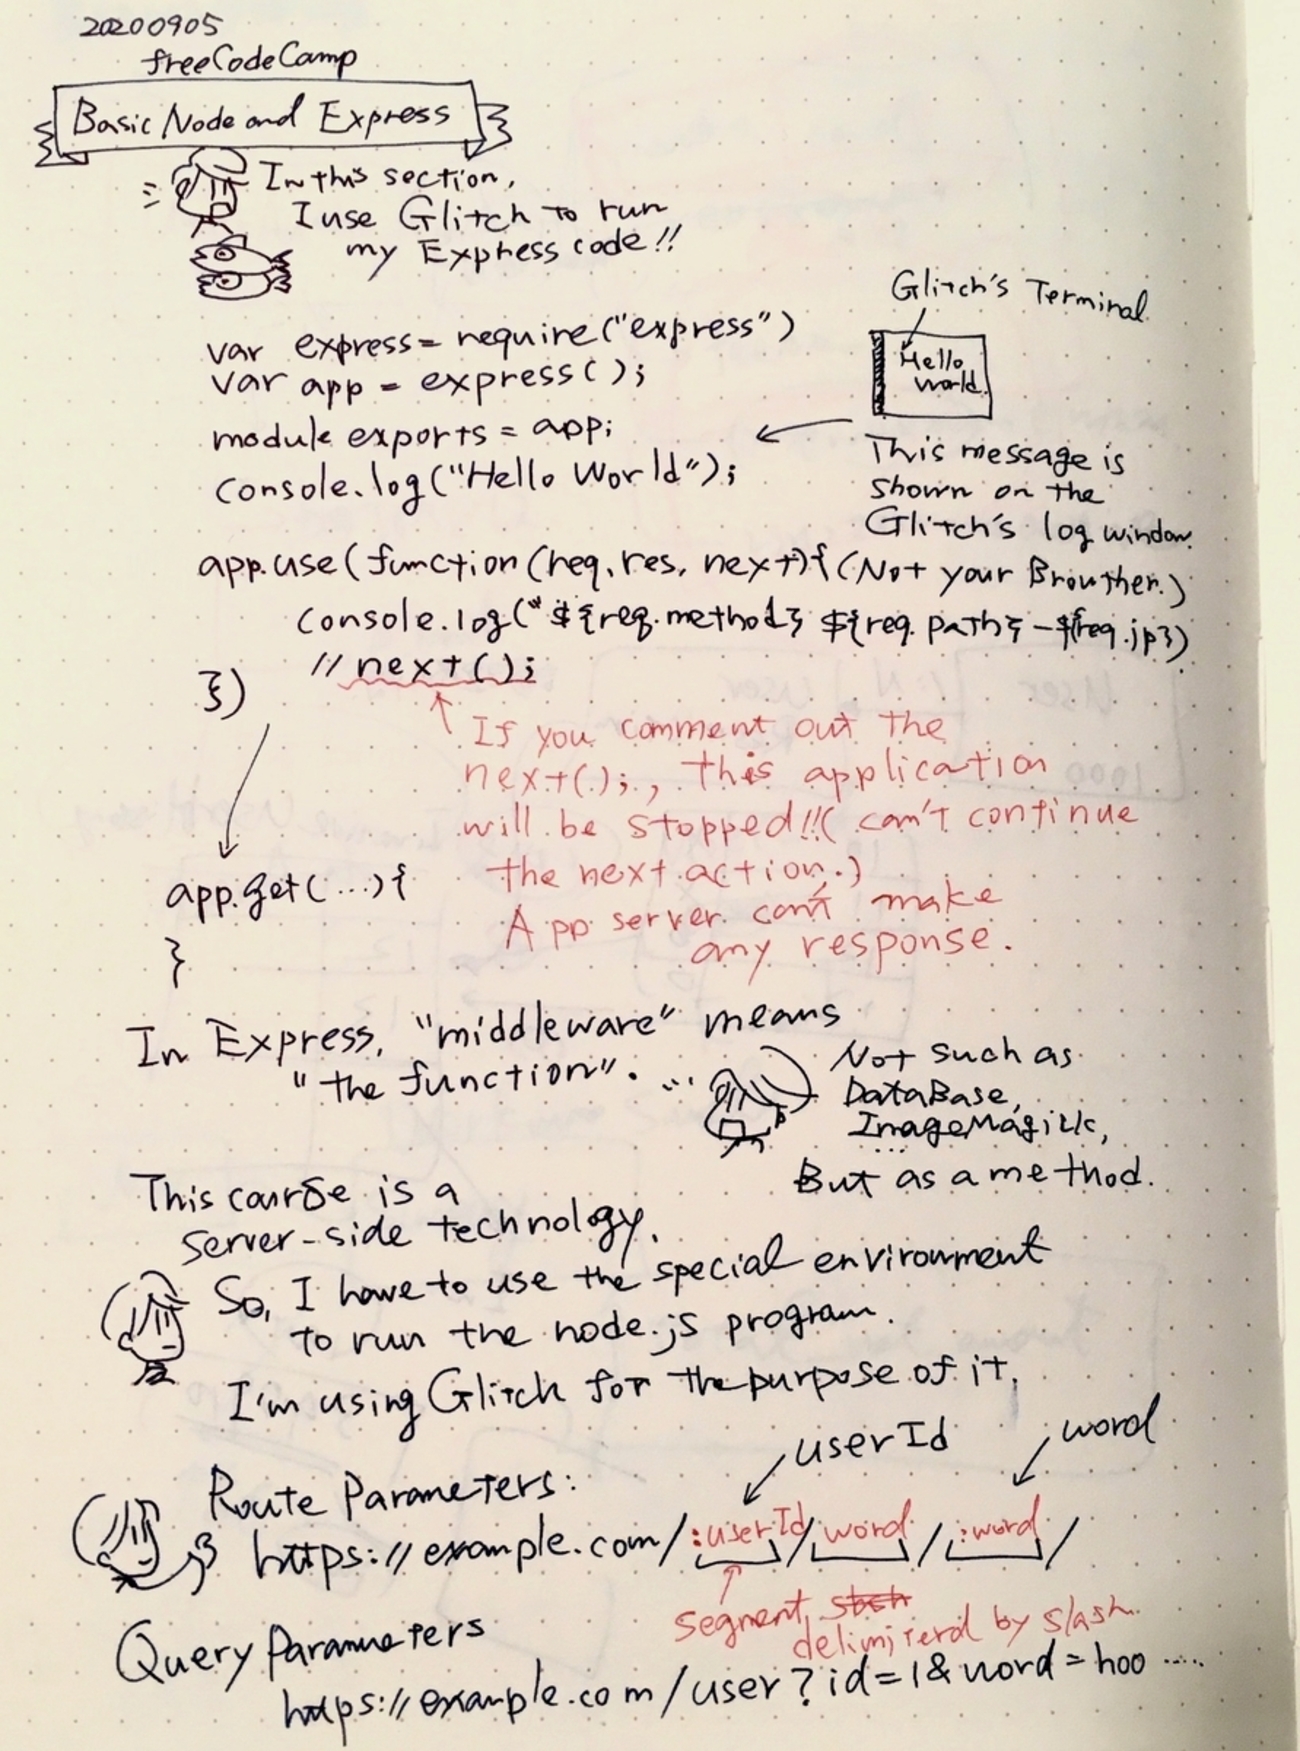 20200905
freeCodeCamp
Basic Node and Express
In this section,
I use Glitch to run
my Express code!!
Glitch's Terminal
Hello
World.
var express = require("express")
var app = express();
module exports = app;
console.log("Hello World");
This message is
shown on the
Glitch's log window.
(Not your Browther.)
app.use(function(req, res, next){
console.log("${req.method} ${req.path} - ${req.ip})
// next();
})
If you comment out the
next();, this application
will be stopped!!( can't continue
the next action.)
App server can't make
any response.
app.get(...){
}
In Express, "middleware" means
"the function". ...
Not such as
DataBase,
ImageMagick,
...
But as a method.
This course is a
server-side technology.
So, I have to use the special environment
to run the node.js program.
I'm using Glitch for the purpose of it.
userId
word
Route Parameters:
https://example.com/:userId/word/:word/
segment,
delimiterd by slash.
Query Parameters
https://example.com/user?id=1&word=hoo .....